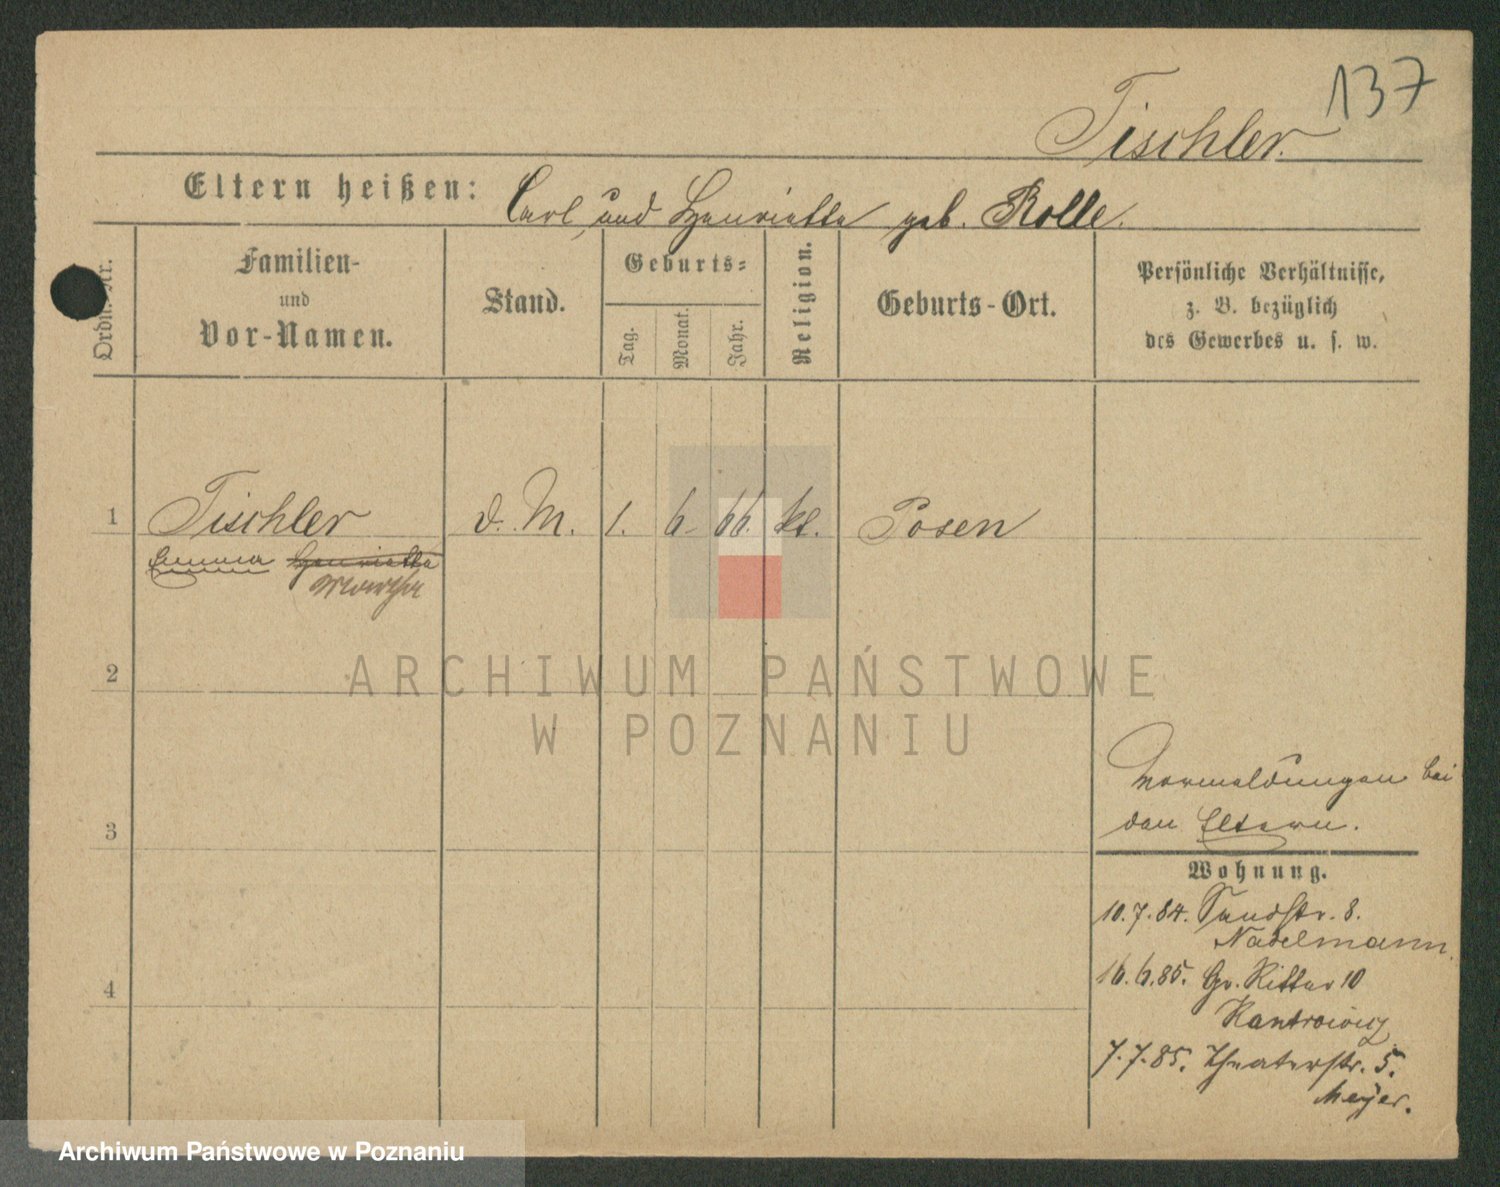 137
Tischler.
Eltern heißen: Carl und Henriette geb. Rolle.
Ordn.-Nr.
Familien-
und
Vor-Namen.
Stand.
Geburts-
Tag.
Monat.
Jahr.
Religion.
Geburts-Ort.
Persönliche Verhältnisse,
z. B. bezüglich
des Gewerbes u. s. w.
1 Tischler d. M. 1. 6. 66. kt. Posen
Emma Henriette
Martha
2
ARCHIWUM PAŃSTWOWE
W POZNANIU
3
Vormeldungen bei
den Eltern.
Wohnung.
10.7.84. Sandstr. 8.
Nadelmann.
4
16.6.85. Gr. Ritter 10
Kantrowicz
7.7.85. Theaterstr. 5.
Meyer.
Archiwum Państwowe w Poznaniu